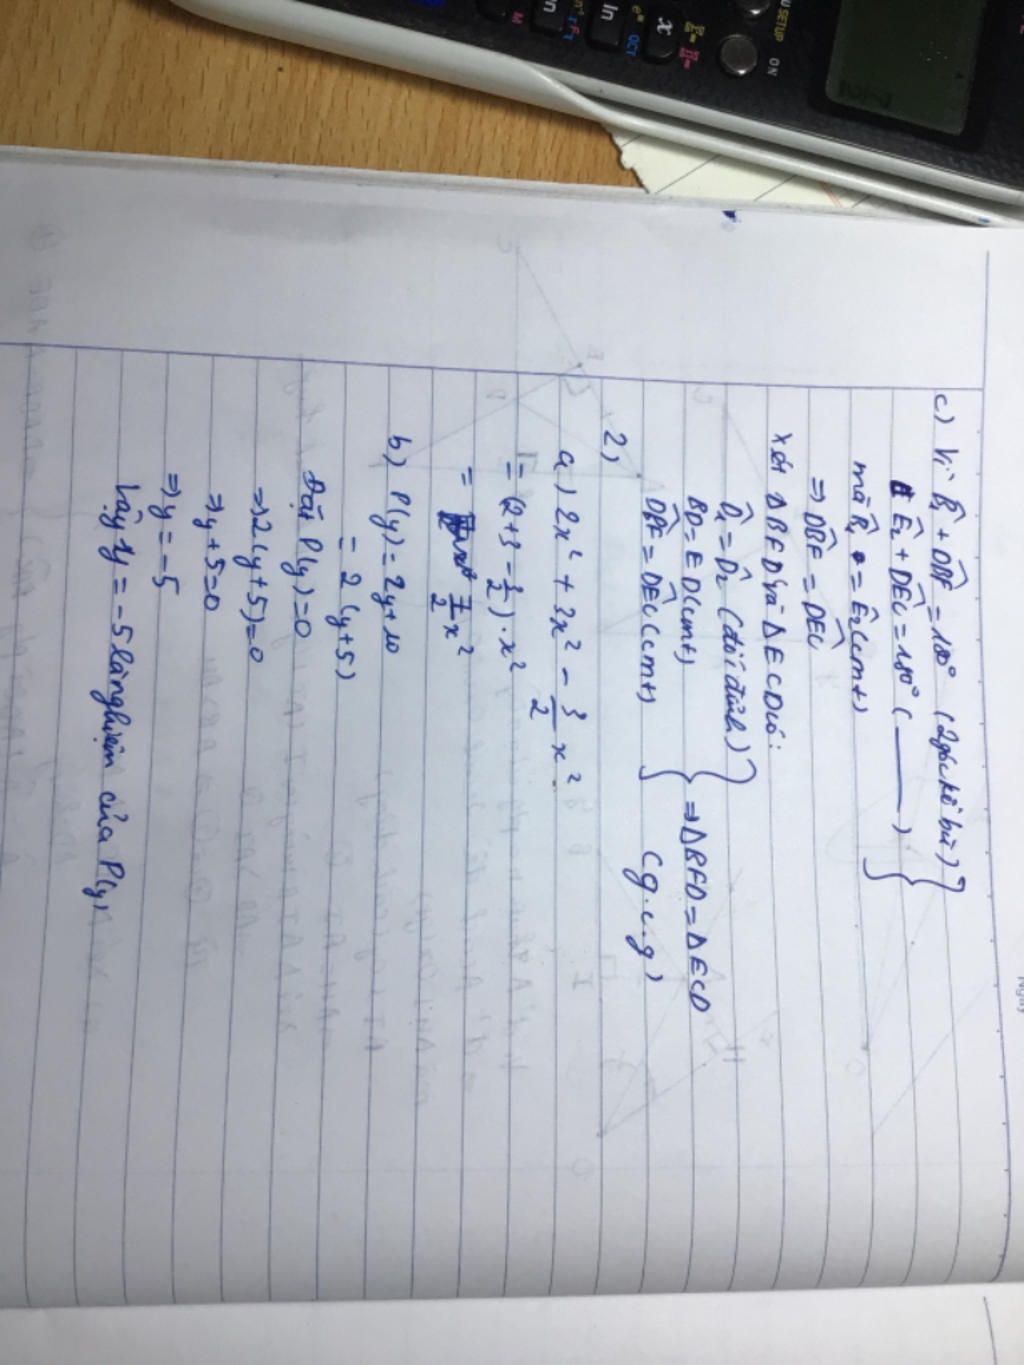 c) Vì B̂₁ + D̂BF = 180° (2 góc kề bù)
Ê₂ + D̂EC = 180° ( ——— )
mà B̂₁ = Ê₂ (cmt)
⇒ D̂BF = D̂EC
Xét ΔBFD và ΔECD có:
D̂₁ = D̂₂ (đối đỉnh)
BD = ED (cmt)
D̂BF = D̂EC (cmt)
⇒ ΔBFD = ΔECD
(g.c.g)
2)
a) 2x² + 3x² - 3/2 x²
= (2 + 3 - 3/2) . x²
= 7/2 x²
b) P(y) = 2y + 10
= 2 (y + 5)
Đặt P(y) = 0
⇒ 2 (y + 5) = 0
⇒ y + 5 = 0
⇒ y = -5
Vậy y = -5 là nghiệm của P(y)
SETUP
ON
x
ln
OCT
M
Ngày